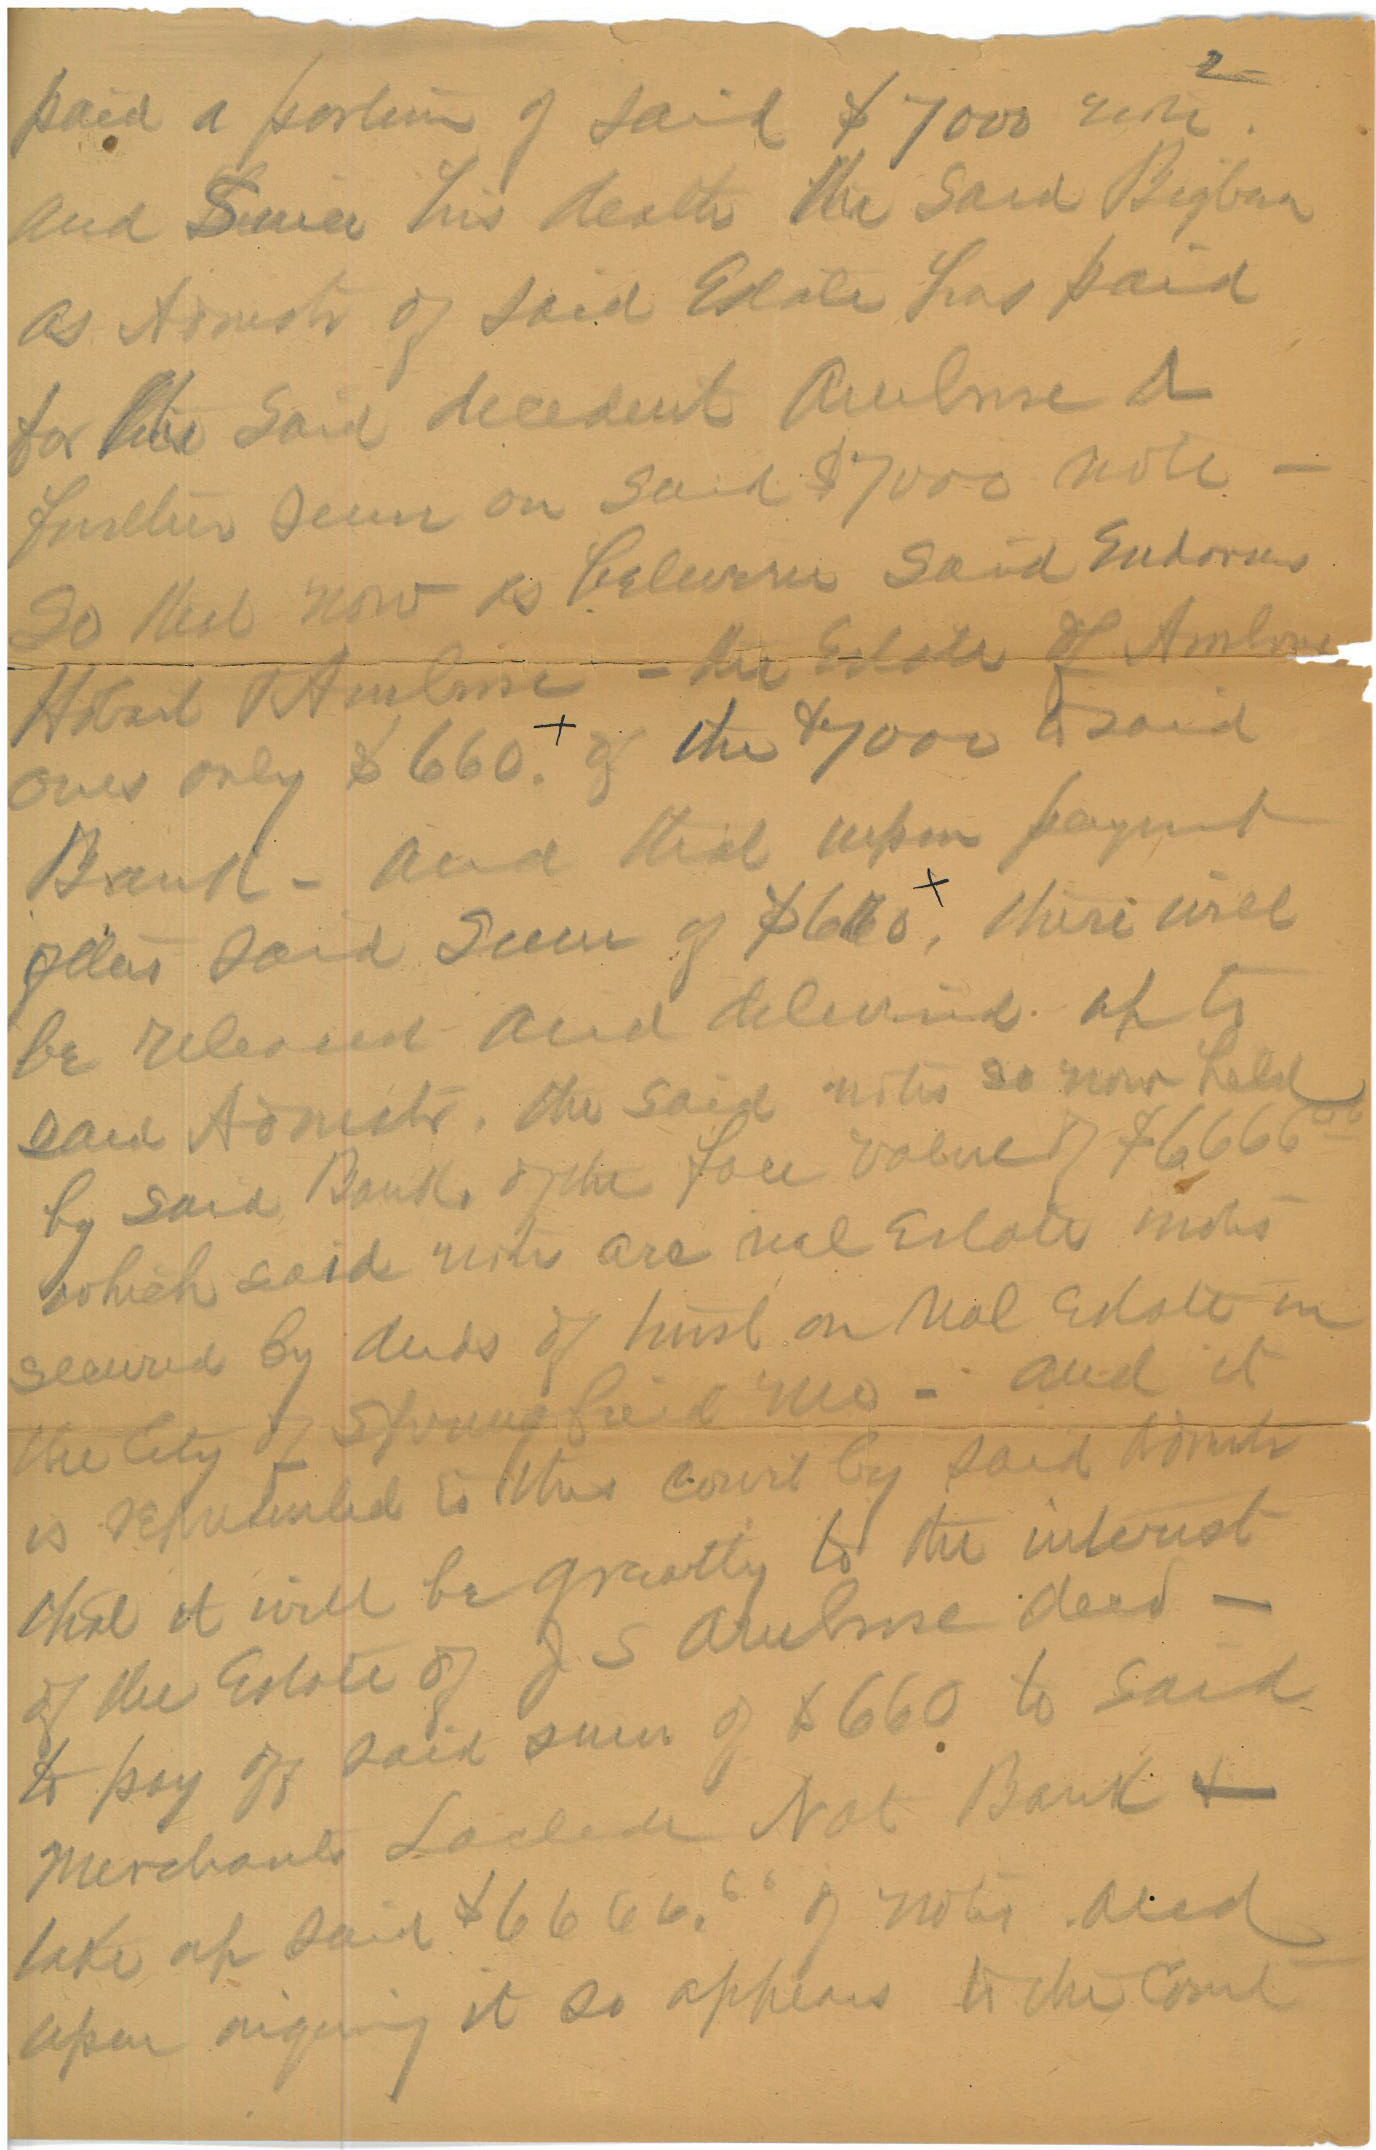 2
paid a portion of said $7000 note.
and Since his death the said Bigbee
as Admstr of said Estate has paid
for the said decedent Ambrose a
further sum on said $7000 note –
So that now as between said Endorsers
& Ambrose – the Estate of Ambrose
owes only $660.+ of the $7000 to said
Bank – and that upon paymt
of the said Sum of $660+, there will
be released and delivered up to
said Admstr. the said notes so now held
by said Bank, of the face value of $6666 66
which said notes are real Estate notes
secured by deeds of trust on real Estate in
the City of Springfield Mo – and it
is represented to this court by said Admstr
that it will be greatly to the interest
of the Estate of J S Ambrose decd –
to pay off said sum of $660 to said
Merchants Laclede Nat Bank &
take up said $6666.66 of notes and
upon inquiry it so appears to the Court